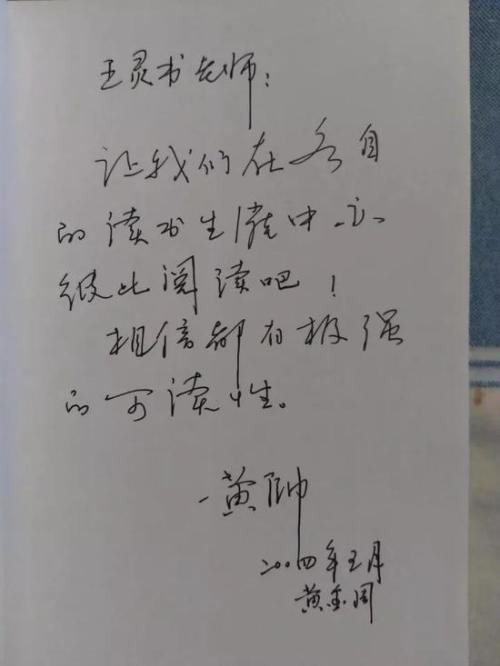 王灵书老师：
让我们在各自
的读书生涯中，
彼此阅读吧！
相信都有极强
的可读性。
黄帅
二〇〇四年五月
黄金周